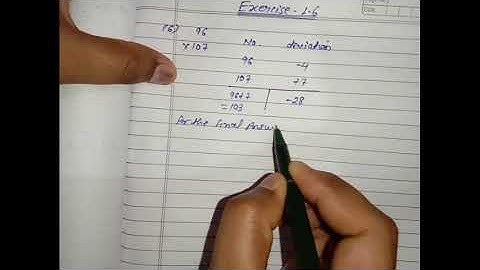 Exercise - 1.6
(5) 96
x 107
No. deviation
96 -4
107 +7
96+7 -28
= 103
For the final Answ